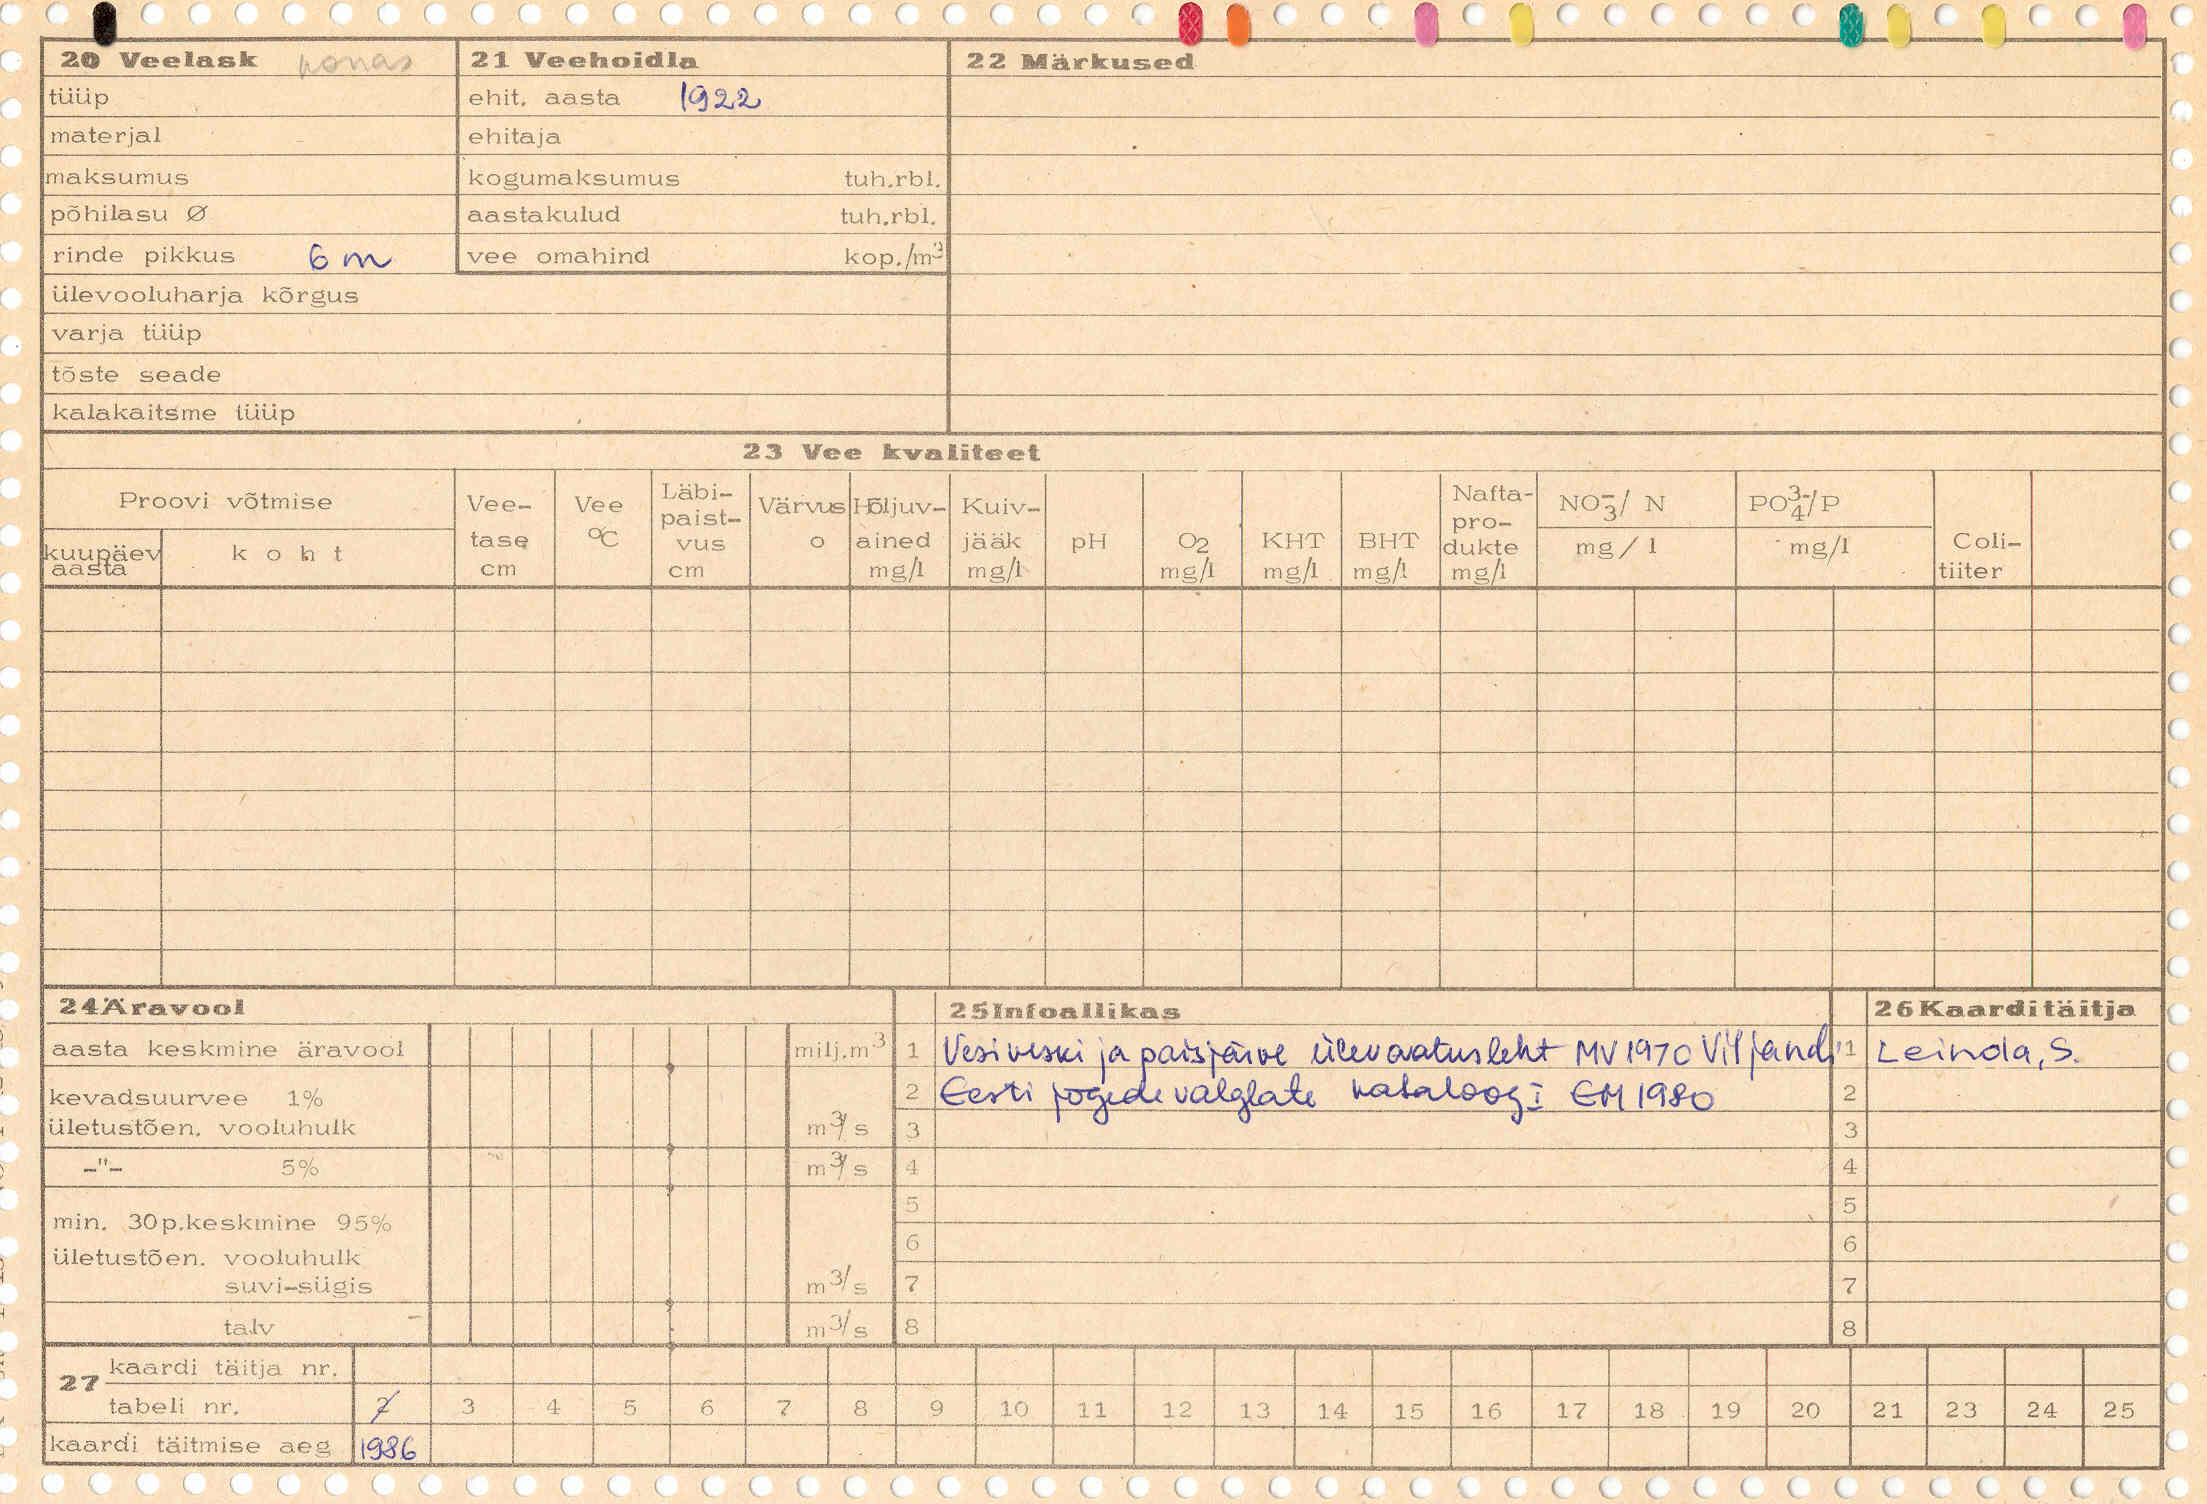 20 Veelask korras
tüüp
materjal
maksumus
põhilasu Ø
rinde pikkus 6 m
ülevooluharja kõrgus
varja tüüp
tõste seade
kalakaitsme tüüp
21 Veehoidla
ehit. aasta 1922
ehitaja
kogumaksumus tuh.rbl.
aastakulud tuh.rbl.
vee omahind kop./m³
22 Märkused
23 Vee kvaliteet
Proovi võtmise
kuupäev
aasta
koht
Vee-
tase
cm
Vee
°C
Läbi-
paist-
vus
cm
Värvus
o
Hõljuv-
ained
mg/l
Kuiv-
jääk
mg/l
pH
O₂
mg/l
KHT
mg/l
BHT
mg/l
Nafta-
pro-
dukte
mg/l
NO₃⁻/ N
mg/l
PO₄³⁻/P
mg/l
Coli-
tiiter
24 Äravool
aasta keskmine äravool milj.m³
kevadsuurvee 1%
ületustõen. vooluhulk m³/s
-"- 5% m³/s
min. 30p.keskmine 95%
ületustõen. vooluhulk
suvi-sügis m³/s
talv m³/s
25 Infoallikas
1 Vesiveski ja paisjärve ülevaatusleht MV 1970 Viljandi
2 Eesti jõgede valglate kataloog I EM 1980
3
4
5
6
7
8
26 Kaarditäitja
1 Leinola, S.
2
3
4
5
6
7
8
27 kaardi täitja nr.
tabeli nr. 2 3 4 5 6 7 8 9 10 11 12 13 14 15 16 17 18 19 20 21 23 24 25
kaardi täitmise aeg 1986